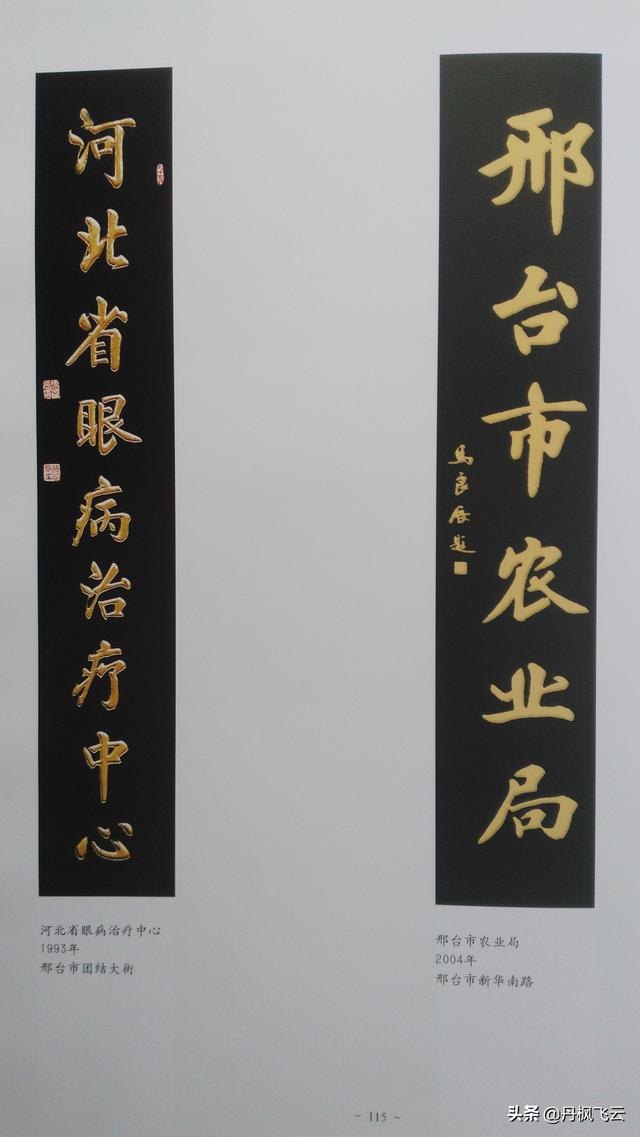 河北省眼病治疗中心
邢台市农业局
马良辰题
河北省眼病治疗中心
1993年
邢台市团结大街
邢台市农业局
2004年
邢台市新华南路
~ 115 ~
头条 @丹枫飞云